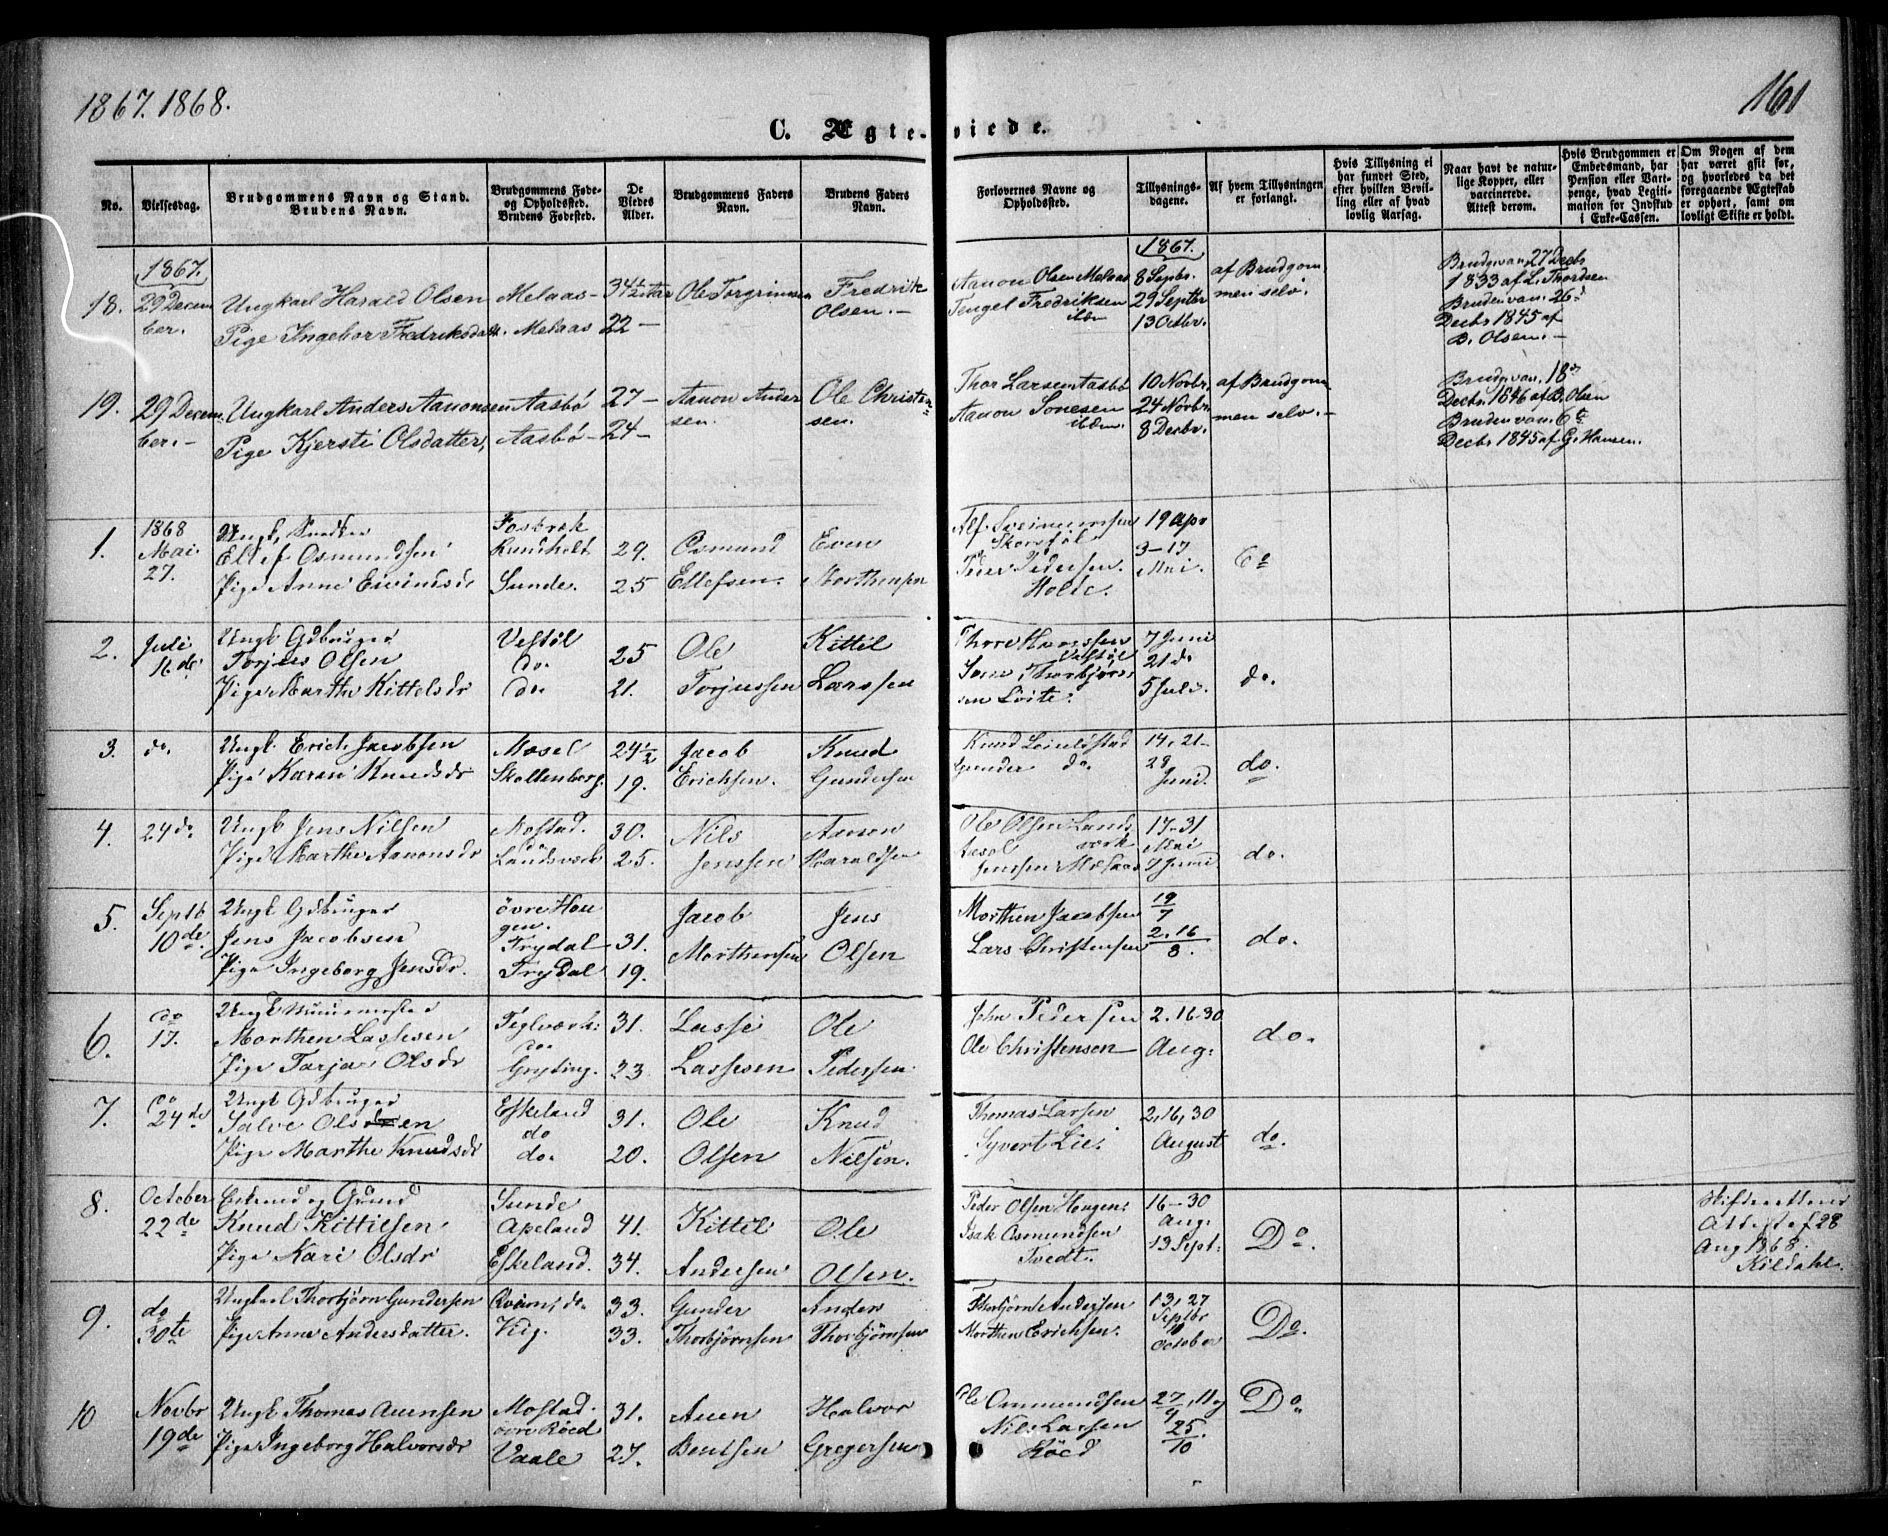 1867. 1868.
161
C. Ægteviede.
No.
Vielsesdag.
Brudgommens Navn og Stand.
Brudens Navn.
Brudgommens Føde-
og Opholdssted.
Brudens Fødested.
De
Viedes
Alder.
Brudgommens Faders
Navn.
Brudens Faders
Navn.
Forlovernes Navne og
Opholdssted.
Tillysnings-
dagene.
Af hvem Tillysningen
er forlangt.
Hvis Tillysning ei
har fundet Sted,
efter hvilken Bevil-
ling eller af hvad
lovlig Aarsag.
Naar havt de natur-
lige Kopper, eller
vaccinerede.
Attest derom.
Hvis Brudgommen er
Embedsmand, har
Pension eller Vart-
penge, hvad Legiti-
mation for Indskud
i Enke-Cassen.
Om Nogen af dem
har været gift før,
og hvorledes da det
foregaaende Ægteskab
er ophørt, samt om
lovligt Skifte er holdt.
18.
1867.
29 Decem
ber.
Ungkarl Harald Olsen
Pige Ingebor Fredriksdatt.
Melaas-
Melaas
34 1/2 Aar
22 -
Ole Torgrimsen
Fredrik
Olsen. -
Aanon Olsen Melaas
Tengel Fredriksen
ibdm
1867.
8 Septbr.
29 Septbr
13 Octbr.
af Brudgom
men selv.
Brudg. van. 27 Decbr
1833 af L. Thordsen
Bruden van. 26 d
Decbr 1845 af
B. Olsen. -
19.
29 Decem
ber. -
Ungkarl Anders Aanonsen
Pige Kjersti Olsdatter,
Aasbø
Aasbø -
27 -
24 -
Aanon Ander
sen.
Ole Christen
sen.
Thor Larsen Aasbø
Aanon Sonesen
ibdm.
10 Novbr.
24 Novbr.
8 Decbr.
af Brudgom
men selv. -
Brudg. van. 18 d
Decbr 1846 af B. Olsen
Bruden van. 6 te
Decbr 1845 af G. Hansen.
1.
1868
Mai.
27.
Ungk, Snedker
Ellef Osmundsen
Pige Anne Evensdr
Fosbræk
Rundholt
Sunde.
29.
25
Osmund
Ellefsen.
Even
Morthensen
Alf Sveinumsen
Peder Pedersen.
Holte.
19 Apr
3-17
Mai.
2.
Juli
16 de
Ungk Gdbruger
Torjus Olsen
Pige Marthe Kittelsdr
Vestøl
do.
do.
25
21.
Ole
Torjussen
Kittil
Larssen
Thore Hanssen
Vestøl
7 Juni
21 do
5 Juli.
do.
3.
do.
Ungk. Erich Jacobsen
Pige Karen Knudsdr
Mosel
Skollenborg.
24 1/2
19.
Jacob
Erichsen.
Knud
Gundersen
Gunder do.
14, 21-
28
Juni.
do.
4.
24 do
Ungk Jens Nilsen
Pige Marthe Aanonsdr
Mostad.
Landsværk
30.
25.
Nils
Jenssen
Aanon
Haraldsen
Ole Olsen Lands
værk
Jenssen
17-31
Mai
7 Juni
do.
5.
Septb
10 de.
Ungk Gdbruger
Jens Jacobsen
Pige Ingeborg Jensdr.
øvre Hou
gen.
Trydal
Trydal
31.
19.
Jacob
Morthensen
Jens
Olsen
Morthen Jacobsen
Lars Christensen
19/7
2. 16/8.
do.
6.
do
17.
Ungk Muurmester
Morthen Lassesen
Pige Tarja Olsdr
Teglværk:
do.
Gryting.
31.
23
Lasse
Lassesen
Ole
Pedersen.
John Pedersen
Ole Christensen
2. 16-30
Aug:
do.
7.
do
24 de
Ungk Gdbruger
Salve Olssen
Pige Marthe Knudsdr
Eskeland
do
do.
31.
20.
Ole
Olsen
Knud
Nilsen.
Thomas Larsen
Syvert Lie.
2, 16, 30
August
do.
8.
October
22 de
Enkemd og Gmd
Knud Kittilsen
Pige Kari Olsdr
Sunde
Apeland
Eskeland.
41.
34.
Kittil
Andersen
Ole
Olsen.
Peder Olsen Hougen.
Isak Osmundsen
Tvedt.
16-30
Aug:
13 Sept:
Do.
Skifteretten
Attest af 28
Aug 1868.
Kildahl.
9.
do
30te
Ungkarl Thorbjørn Gundersen
Pige Anne Andersdatter.
Vig.
33.
33.
Gunder
Thorbjørnsen
Anders
Thorbjørnsen
Thorbjørn Andersen
Morthen Erichsen.
13, 27
Septbr
October
Do.
10
Novbr
19 de
Ungk Thomas Auensen
Pige Ingeborg Halvorsdr
Mostad.
øvre Røed
Vaale
31.
27.
Auen
Bentsen
Halvor
Gregersen
Ole Ommundsen
Nils Larssen
Røed
27/9, 11 og
25/10
Do.